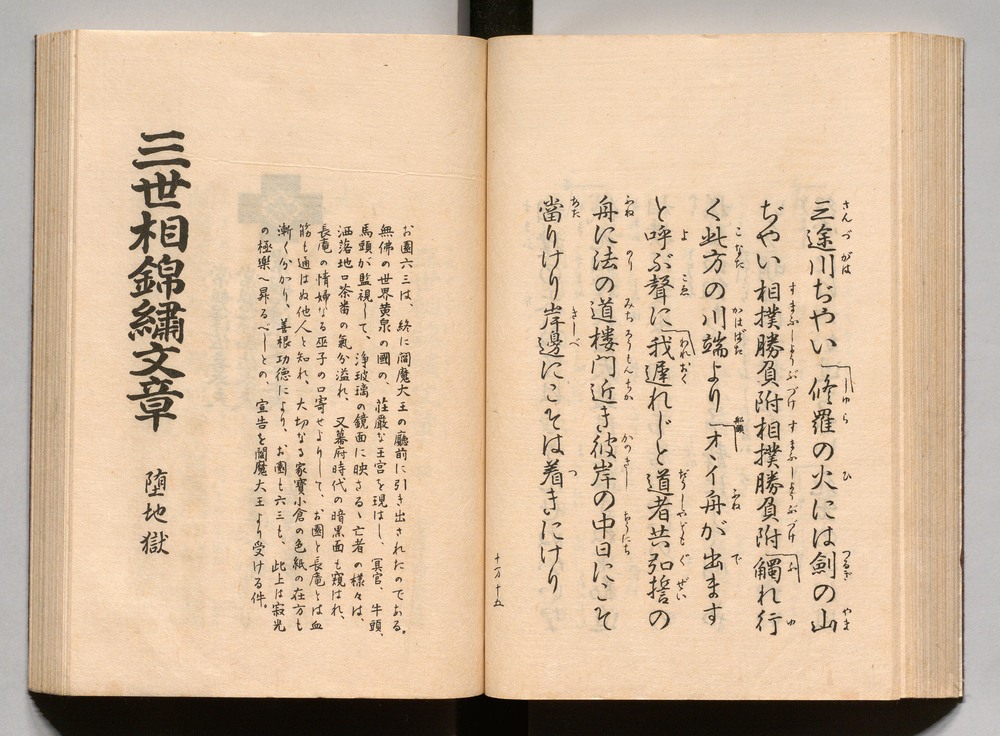 三途川ぢやい「修羅の火には劍の山
ぢやい相撲勝負附相撲勝負附「觸れ行
く此方の川端より「オイ舟が出ます
と呼ぶ聲に「我遲れじと道者共弘誓の
舟に法の道樓門近き彼岸の中日にこそ
當りけり岸邊にこそは着きにけり
お園六三は、終に閻魔大王の廳前に引き出されたのである。
無佛の世界黄泉の國の、莊嚴な王宮を現はし、冥官、牛頭、
馬頭が監視して、淨玻璃の鏡面に映さるゝ亡者の様々は、
洒落地口茶番の氣分溢れ、又幕府時代の暗黒面も窺はれ、
長庵の情婦なる巫子の口寄せよりして、お園と長庵とは血
筋も通はぬ他人と知れ、大切なる家寶小倉の色紙の在方も
漸く分かり、善根功德により、お園も六三も、此上は寂光
の極樂へ昇るべしとの、宣告を閻魔大王より受ける件。
三世相錦繡文章　堕地獄